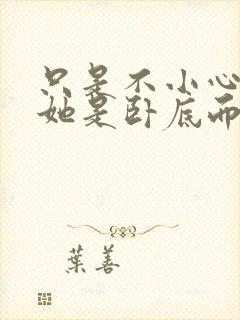 只是不小心
她是卧底而
葉善